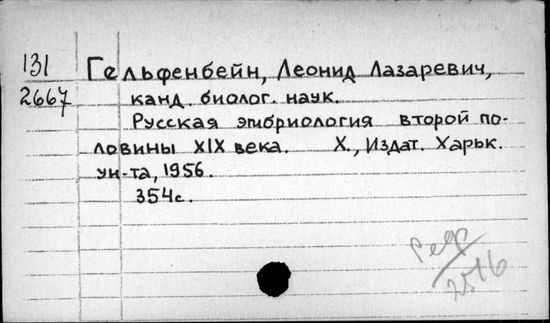 131
2667
Гельфенбейн, Леонид Лазаревич,
канд. биолог. наук.
Русская эмбриология второй по-
ловины XIX века. Х., Издат. Харьк.
ун-та, 1956.
354с.